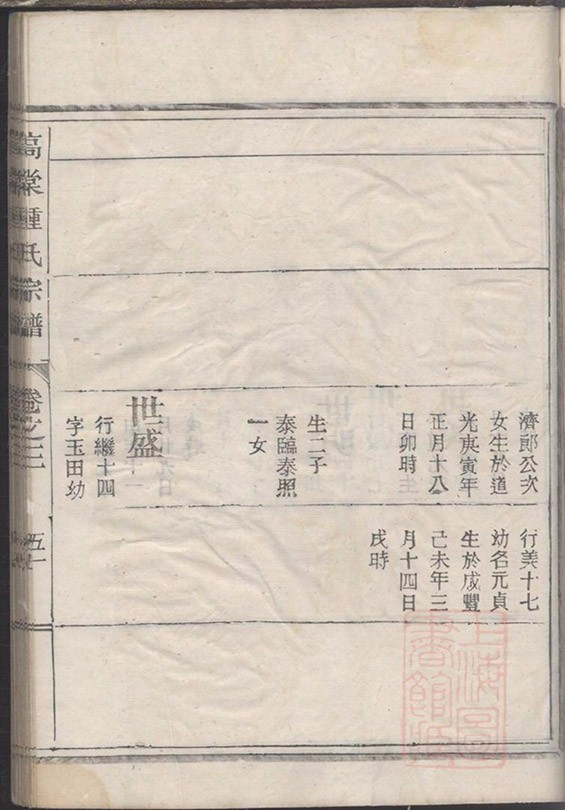 濟郎公次
女生於道
光庚寅年
正月十八
日卯時
生二子
泰臨泰照
一女
世盛
行繼十四
字玉田幼
行美十七
幼名元貞
生於咸豐
己未年三
月十四日
戌時
棠鍾氏宗譜
卷之三
上海圖書館藏